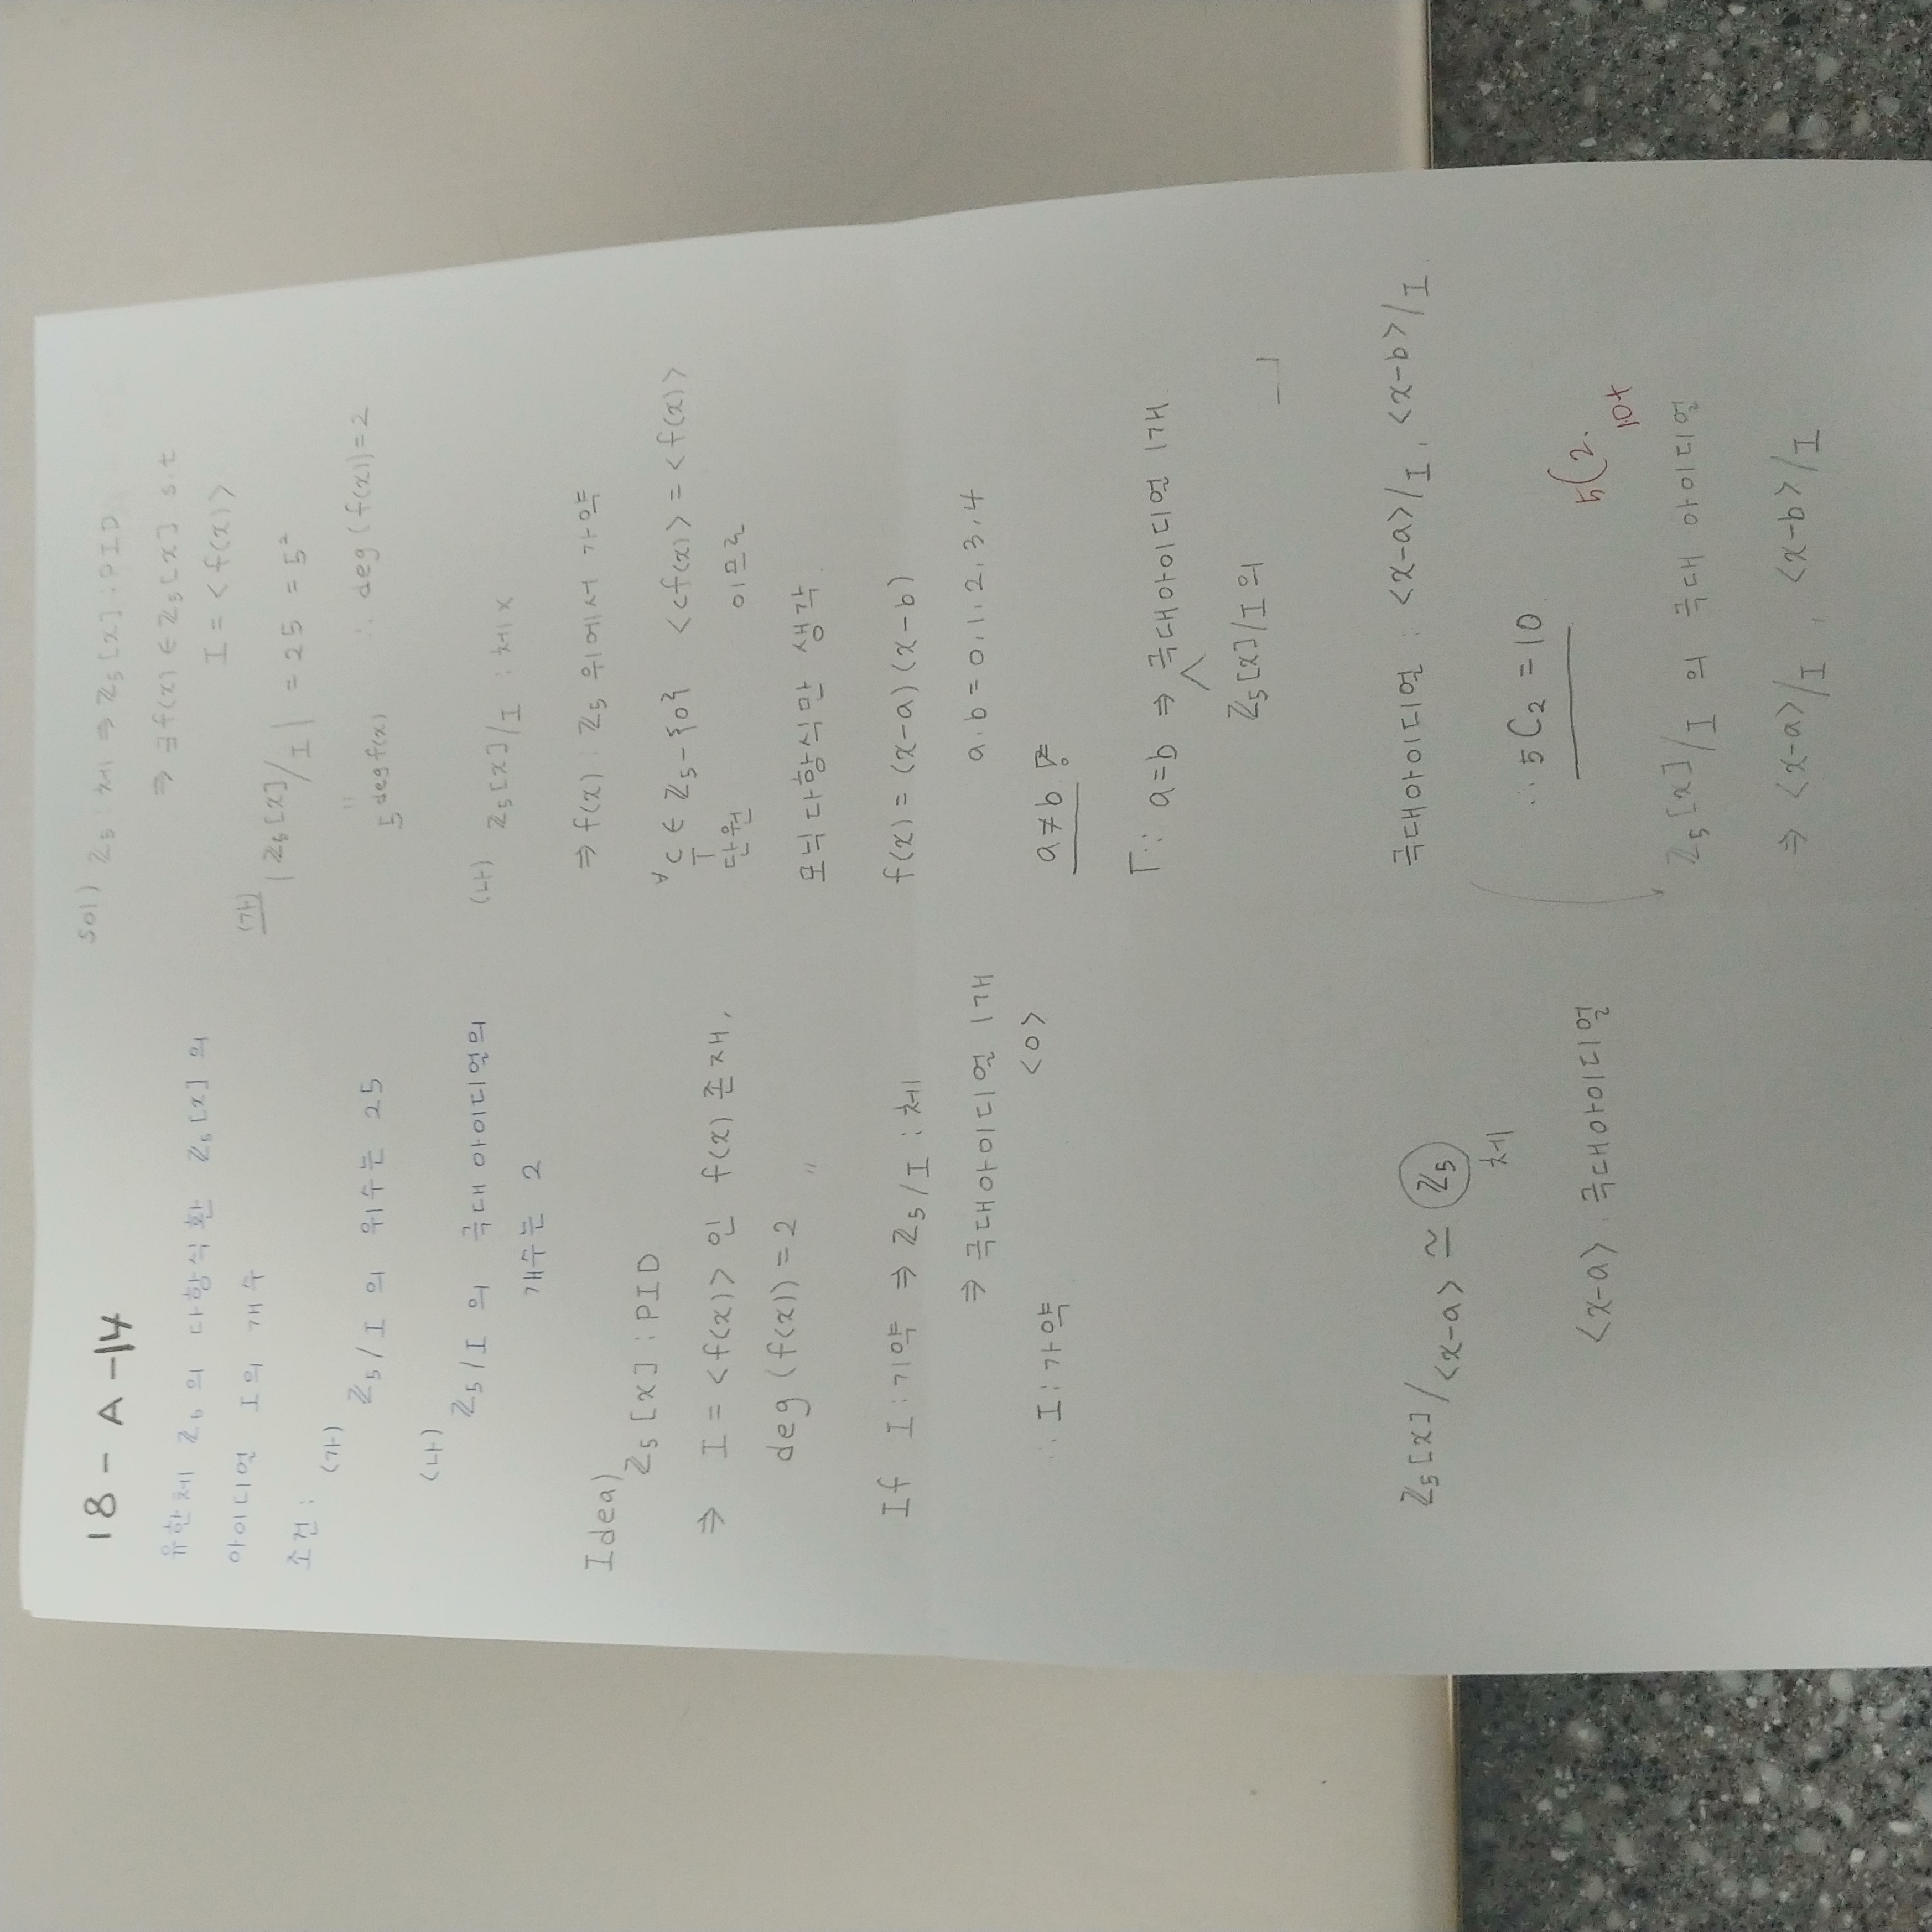 18 - A - 14
유한체 ℤ₅의 다항식환 ℤ₅[x]의
아이디얼 I의 개수
조건 :
(가)
ℤ₅/I 의 위수는 25
(나)
ℤ₅/I 의 극대 아이디얼의
개수는 2
Idea)
ℤ₅[x] : PID
⇒ I = <f(x)> 인 f(x) 존재,
deg (f(x)) = 2 〃
If I : 기약 ⇒ ℤ₅/I : 체
⇒ 극대아이디얼 1개
<0>
∴ I : 가약
ℤ₅[x]/<x-a> ≃ ℤ₅
체
<x-a> : 극대아이디얼
sol) ℤ₅ : 체 ⇒ ℤ₅[x] : PID
⇒ ∃f(x) ∈ ℤ₅[x] s.t
I = <f(x)>
(가)
|ℤ₅[x]/I| = 25 = 5²
〃
5^deg f(x) ∴ deg (f(x)) = 2
(나) ℤ₅[x]/I : 체 x
⇒ f(x) : ℤ₅ 위에서 가약
∀c ∈ ℤ₅-{0} <cf(x)> = <f(x)>
단원 이므로
모닉다항식만 생각.
f(x) = (x-a)(x-b)
a, b = 0, 1, 2, 3, 4
a≠b
「∵ a=b ⇒ 극대아이디얼 1개
∧
ℤ₅[x]/I의
」
극대아이디얼 : <x-a>/I, <x-b>/I
∴ ₅C₂ = 10
₅C₂.
10+
ℤ₅[x]/I 의 극대 아이디얼
⇒ <x-a>/I , <x-b>/I